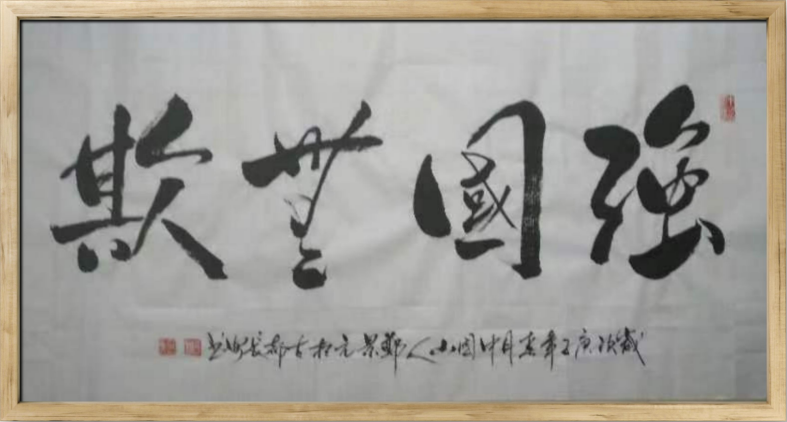 強國無欺
歲次庚子年春月中國山人鄭景元於古都長安書